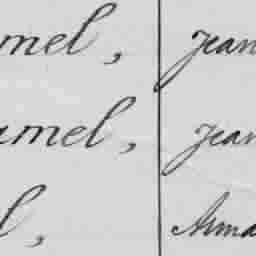 mel, Jean
amel, Jean
l, Arma